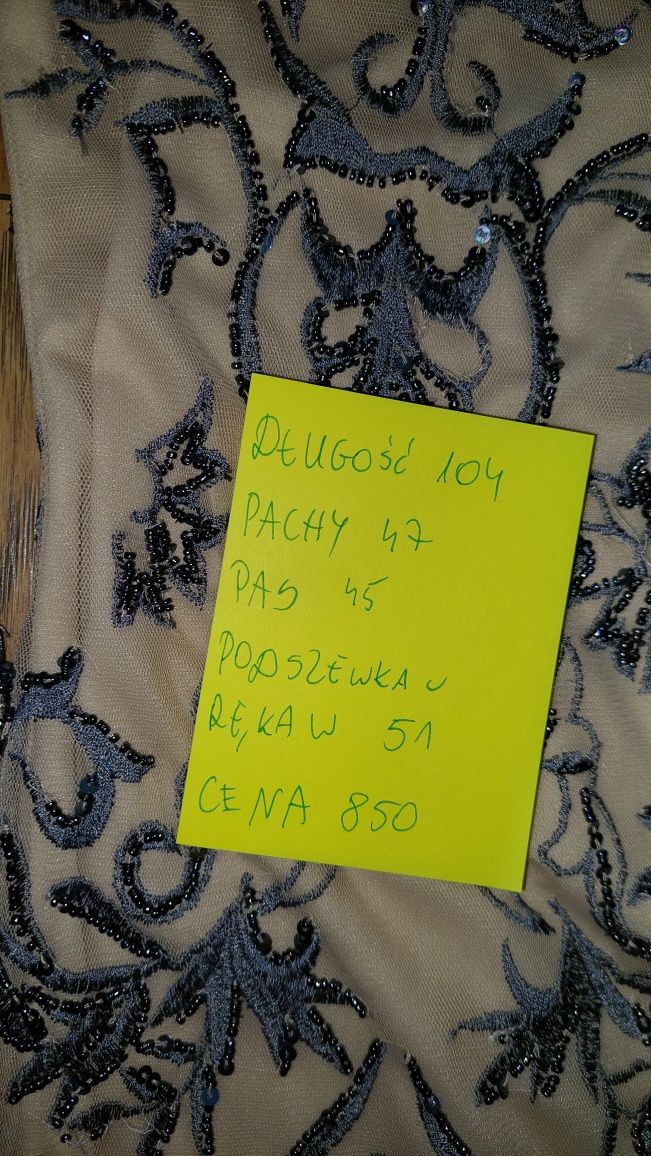 DŁUGOŚĆ 104
PACHY 47
PAS 45
PODSZEWKA ✓
RĘKAW 51
CENA 850